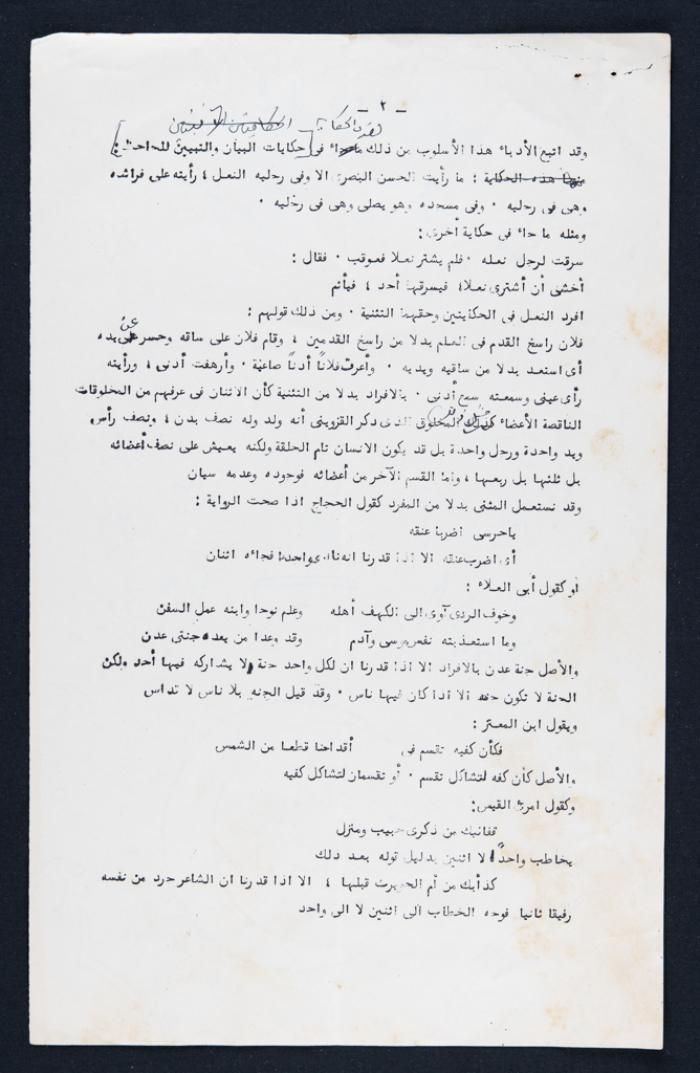 - ٢ -
وقد اتبع الأدباء هذا الأسلوب من ذلك ماجاء في حكايات البيان والتبيين للجاحظ :
منها هذه الحكاية : ما رأيت الحسن البصرى الا وفى رجليه النعل ، رأيته على فراشه
وهى فى رجليه ٠ وفى مسجده وهو يصلى وهى فى رجليه ٠
ومثله ما جاء فى حكاية أخرى :
سرقت لرجل نعله ٠ فلم يشتر نعلا فعوقب ٠ فقال :
أخشى أن أشترى نعلا، فيسرقها أحد ، فيأثم
افرد النعل فى الحكايتين وحقهما التثنية ٠ ومن ذلك قولهم :
فلان راسخ القدم فى العلم بدلا من راسخ القدمين ، وقام فلان على ساقه وحسر عن يده
أى استعد بدلا من ساقيه ويديه ٠ وأعرت فلاناً أذناً صاغية ٠ وأرهفت أذنى ، ورأيته
رأى عينى وسمعته سمع أذنى ٠ بالافراد بدلا من التثنية كأن الاثنان فى عرفهم من المخلوقات
الناقصة الأعضاء المخلوق الذى ذكر القزوينى أنه ولد وله نصف بدن ، ونصف رأس
ويد واحدة ورجل واحدة بل قد يكون الانسان تام الخلقة ولكنه يعيش على نصف أعضائه
بل ثلثها بل ربعها ، واما القسم الآخر من أعضائه فوجوده وعدمه سيان
وقد نستعمل المثنى بدلا من المفرد كقول الحجاج اذا صحت الرواية :
ياحرسى اضربا عنقه
أى اضرب عنقه الا اذا قدرنا انه نادى واحدا فجاءه اثنان
أو كقول أبى العلاء :
وخوف الردى آوى الى الكهف أهله وعلم نوحا وابنه عمل السفن
وما استعذبته نفس موسى وآدم وقد وعدا من بعده جنتى عدن
والأصل جنة عدن بالافراد الا اذا قدرنا ان لكل واحد جنة لا يشاركه فيها أحد ولكن
الجنة لا تكون جنة الا اذا كان فيها ناس ٠ وقد قيل الجنة بلا ناس لا تداس
ويقول ابن المعتز :
فكأن كفيه تقسم فى أقداحنا قطعا من الشمس
والأصل كأن كفه لتشاكل تقسم ٠ أو تقسمان لتشاكل كفيه
وكقول امرئ القيس:
قفانبك من ذكرى حبيب ومنزل
يخاطب واحداً لا اثنين بدليل قوله بعد ذلك
كدأبك من أم الحويرث قبلها ، الا اذا قدرنا ان الشاعر جرد من نفسه
رفيقا ثانيا فوجه الخطاب الى اثنين لا الى واحد